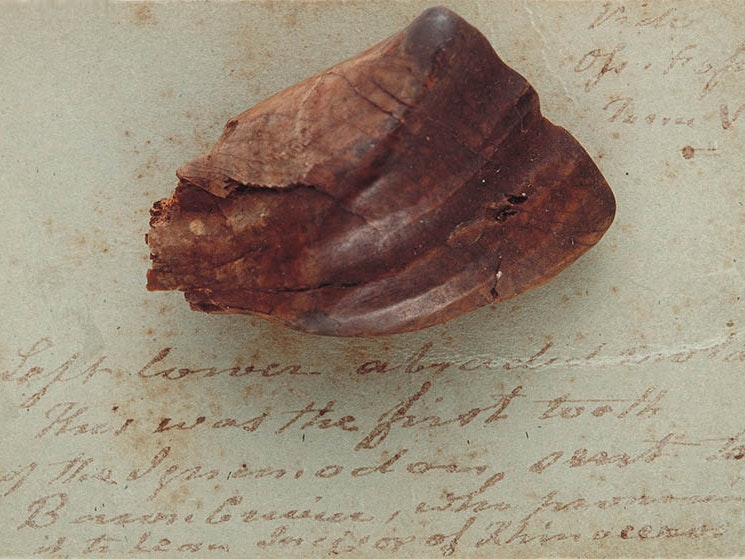 Vide
Left lower abraded mola
This was the first tooth
of the Iguanodon sent to
Baron Cuvier, who pronoun
it to be an Incisor of Rhinoceros